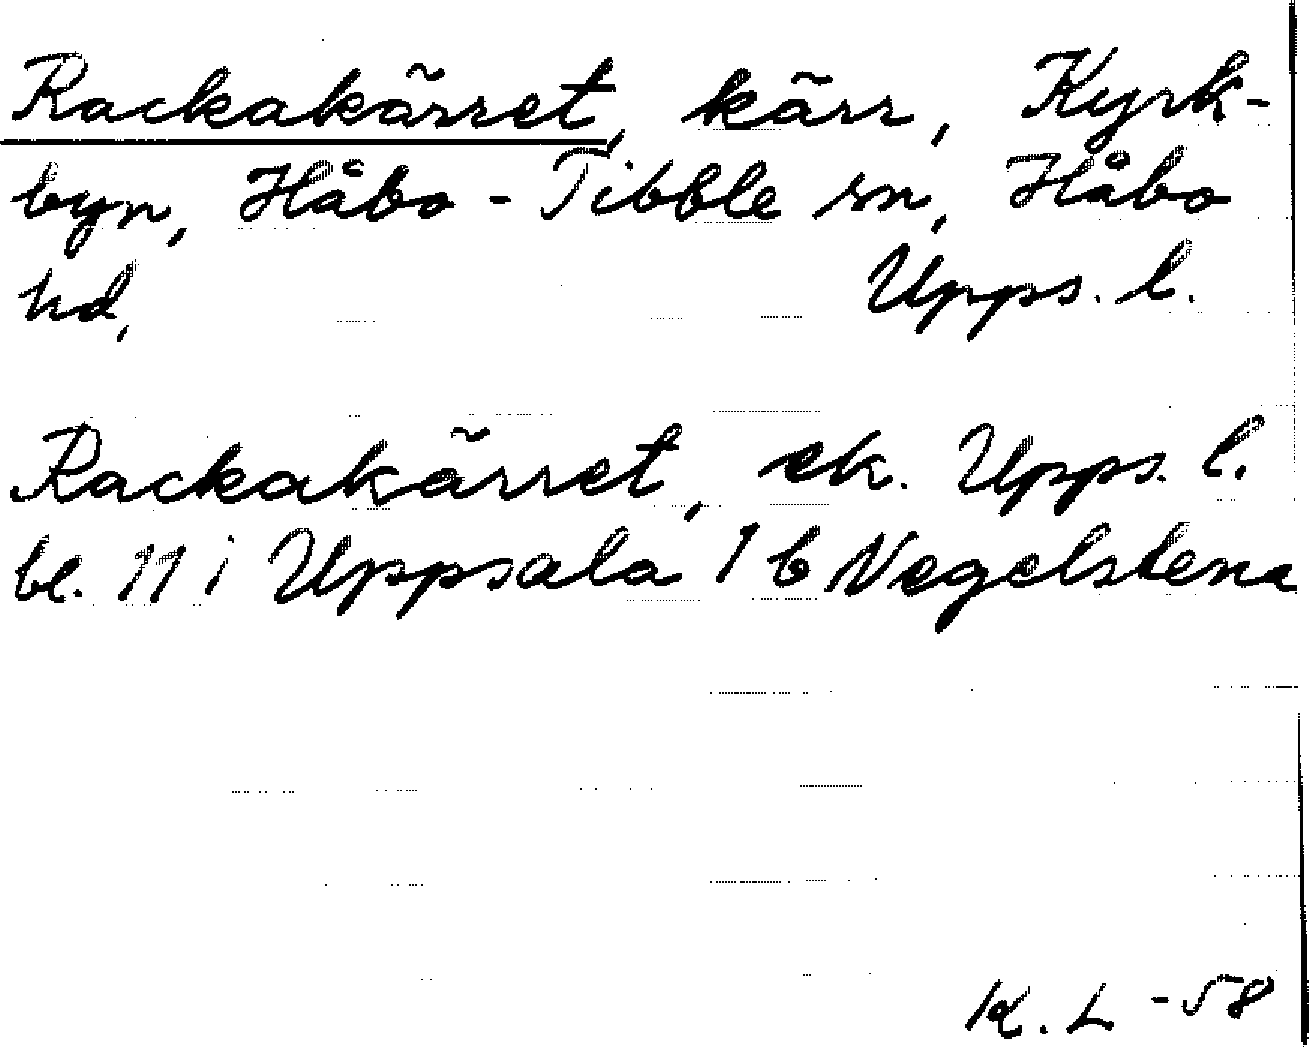 Rackakärret, kärr, Kyrk-
byn, Håbo-Tibble sn, Håbo
hd, Upps. l.
Rackakärret, ek. Upps. l.
bl. 11 i Uppsala 1 b Negelstena
K. L -58